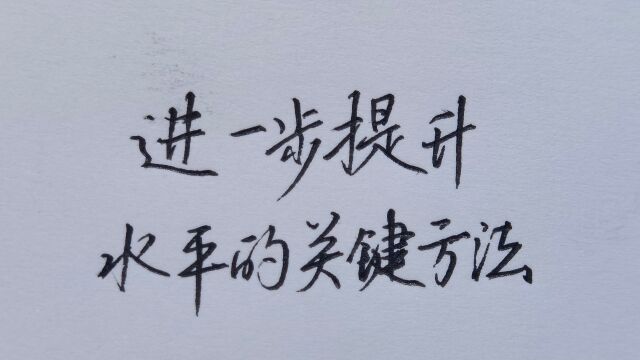 进一步提升
水平的关键方法